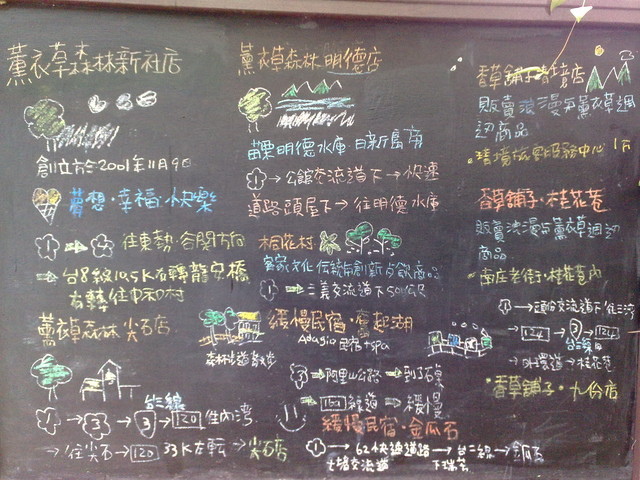 薰衣草森林新社店
創立於2001年11月9日
夢想·幸福·快樂
1 → 往東勢·谷關方向
→ 台8線10.5K右轉龍安橋
右轉往中和村
薰衣草森林 尖石店
台三線
1 → 3 → 3 → 120 往內灣
→ 往尖石 → 120 33K左轉 → 尖石店
薰衣草森林明德店
苗栗明德水庫 日新島旁
1 → 公館交流道下 → 快速
道路頭屋下 → 往明德水庫
桐花村
客家文化 傳統與創新
1 → 三義交流道下500公尺
緩慢民宿·奮起湖
Adagio 民宿+spa
森林步道
3 → 阿里山公路 → 到石棹
→ 縣道 → 緩慢
緩慢民宿·金瓜石
1 → 62快速道路 → 台二線 → 金瓜石
下瑞芳
香草舖子·清境店
販賣浪漫與薰衣草週
邊商品
香草舖子·桂花巷
販賣浪漫與薰衣草週邊
商品
南庄老街·桂花巷內
1 → 頭份交流道下往三灣
→ 124 → 3 → 124
台三線
→ 桂花巷
香草舖子·九份店